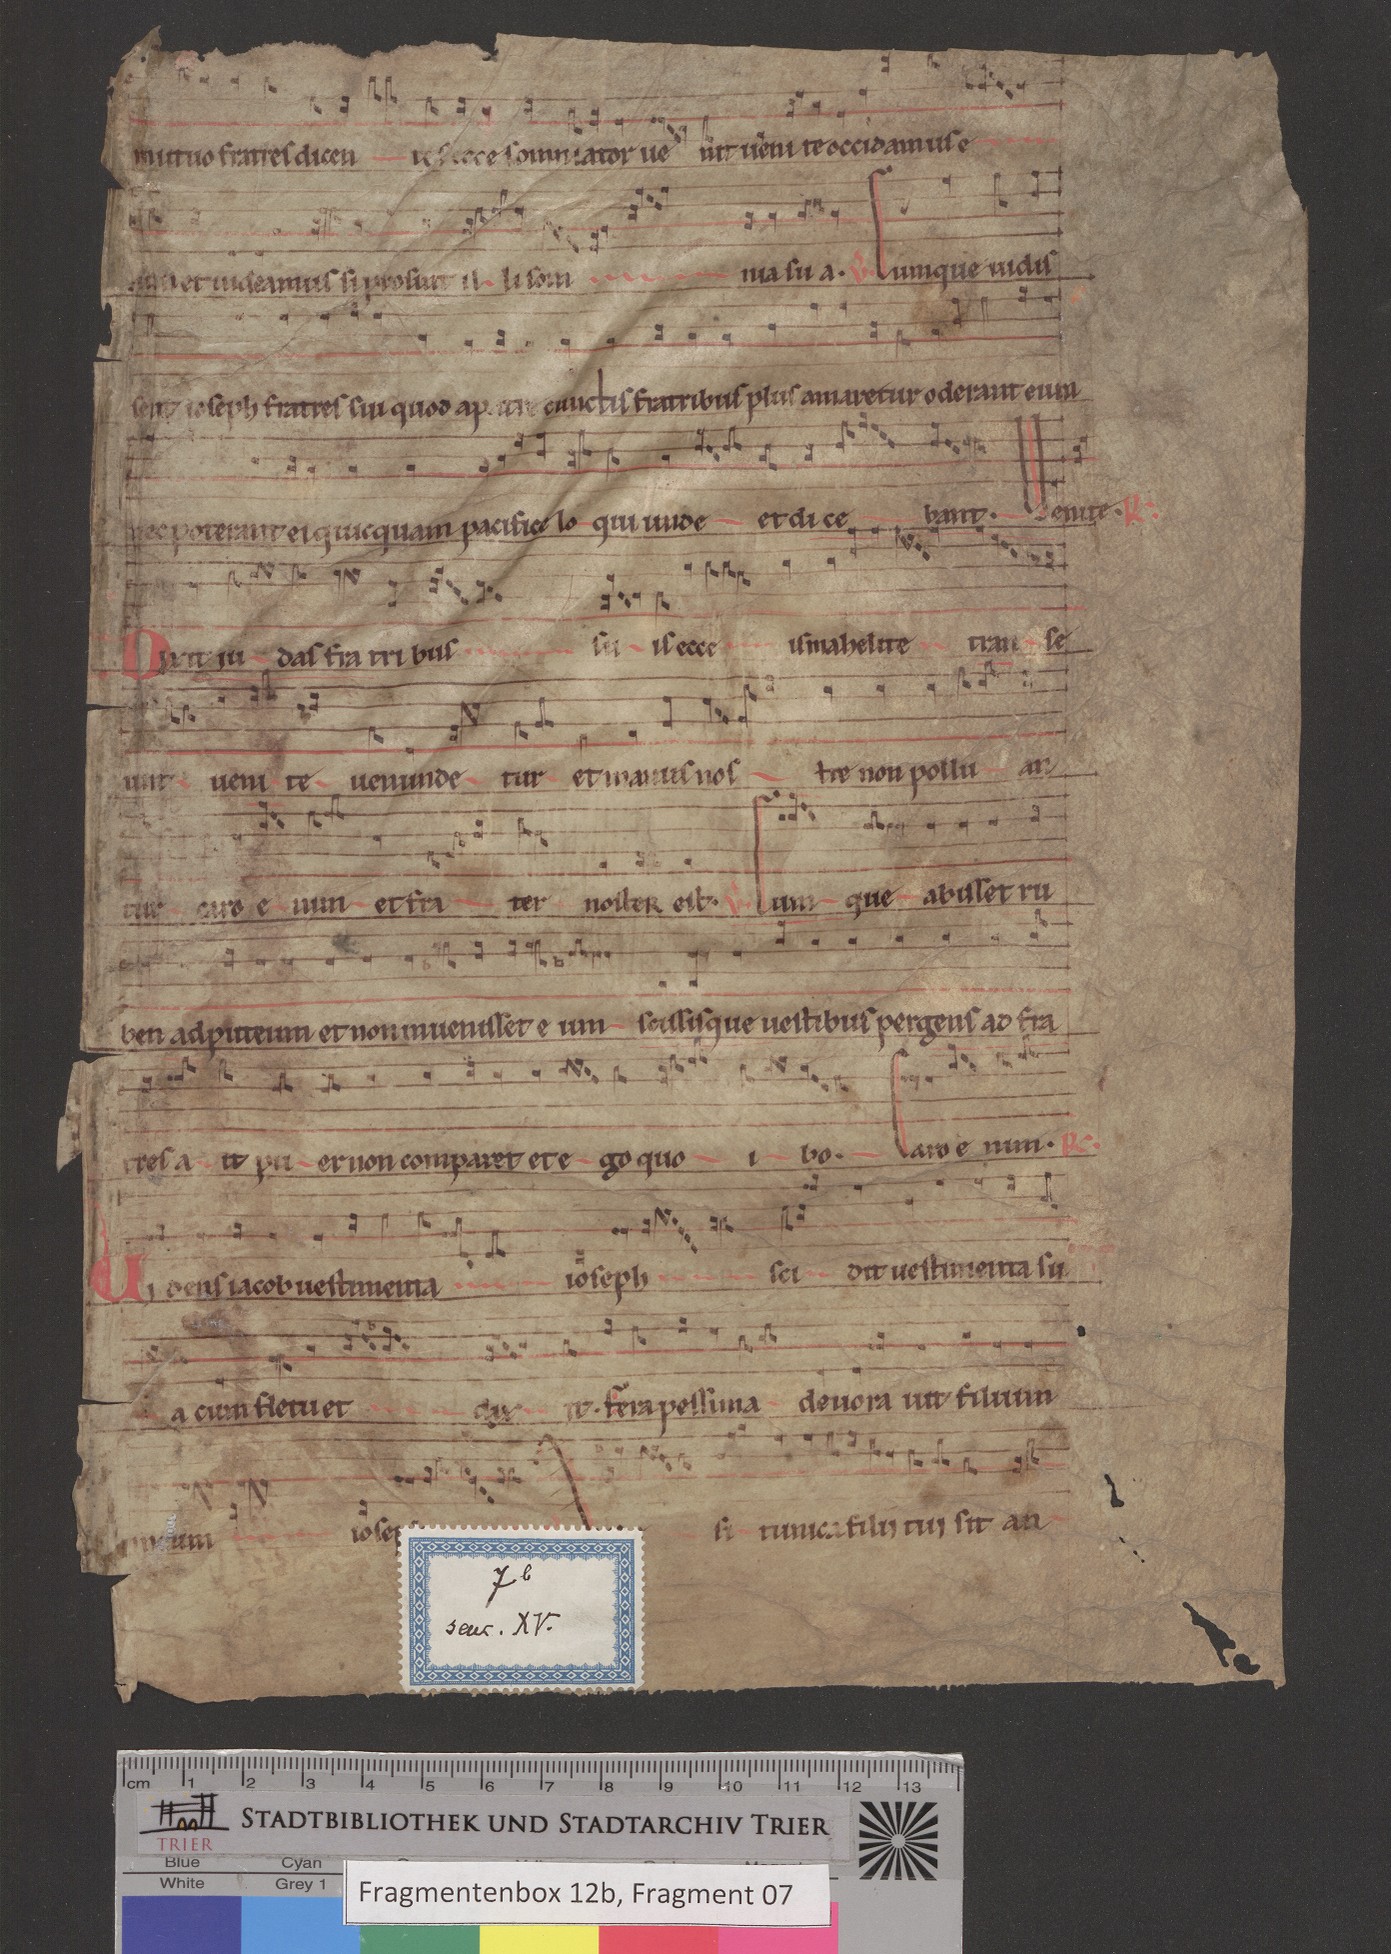 mutuo fratres dicen tes ecce somniator ue nit ueni te occidamus e
um et uideamus si prosint il li som nia su a. V Cumque uidis
sent ioseph fratres sui quod a patre cunctis fratribus plus amaretur oderant eum
nec poterant ei quicquam pacifice lo qui unde et di ce bant. Uenite. R
Dixit iu das fra tri bus su is ecce ismahelite tran se
unt ueni te uenunde tur et manus nos tre non pollu an
tur caro e nim et fra ter noster est. V Cum que abisset ru
ben ad puteum et non inuenisset e um scissisque uestibus pergens ad fra
tres a it pu er non comparet et e go quo i bo. Caro e nim. R
Uidens iacob uestimenta ioseph sci dit uestimenta su
a cum fletu et dix it. fera pessima deuora uit filium
meum iosep si tunica filij tui sit an
7b
saec. XV.
cm 1 2 3 4 5 6 7 8 9 10 11 12 13
TRIER
STADTBIBLIOTHEK UND STADTARCHIV TRIER
Blue Cyan
White Grey 1
Fragmentenbox 12b, Fragment 07